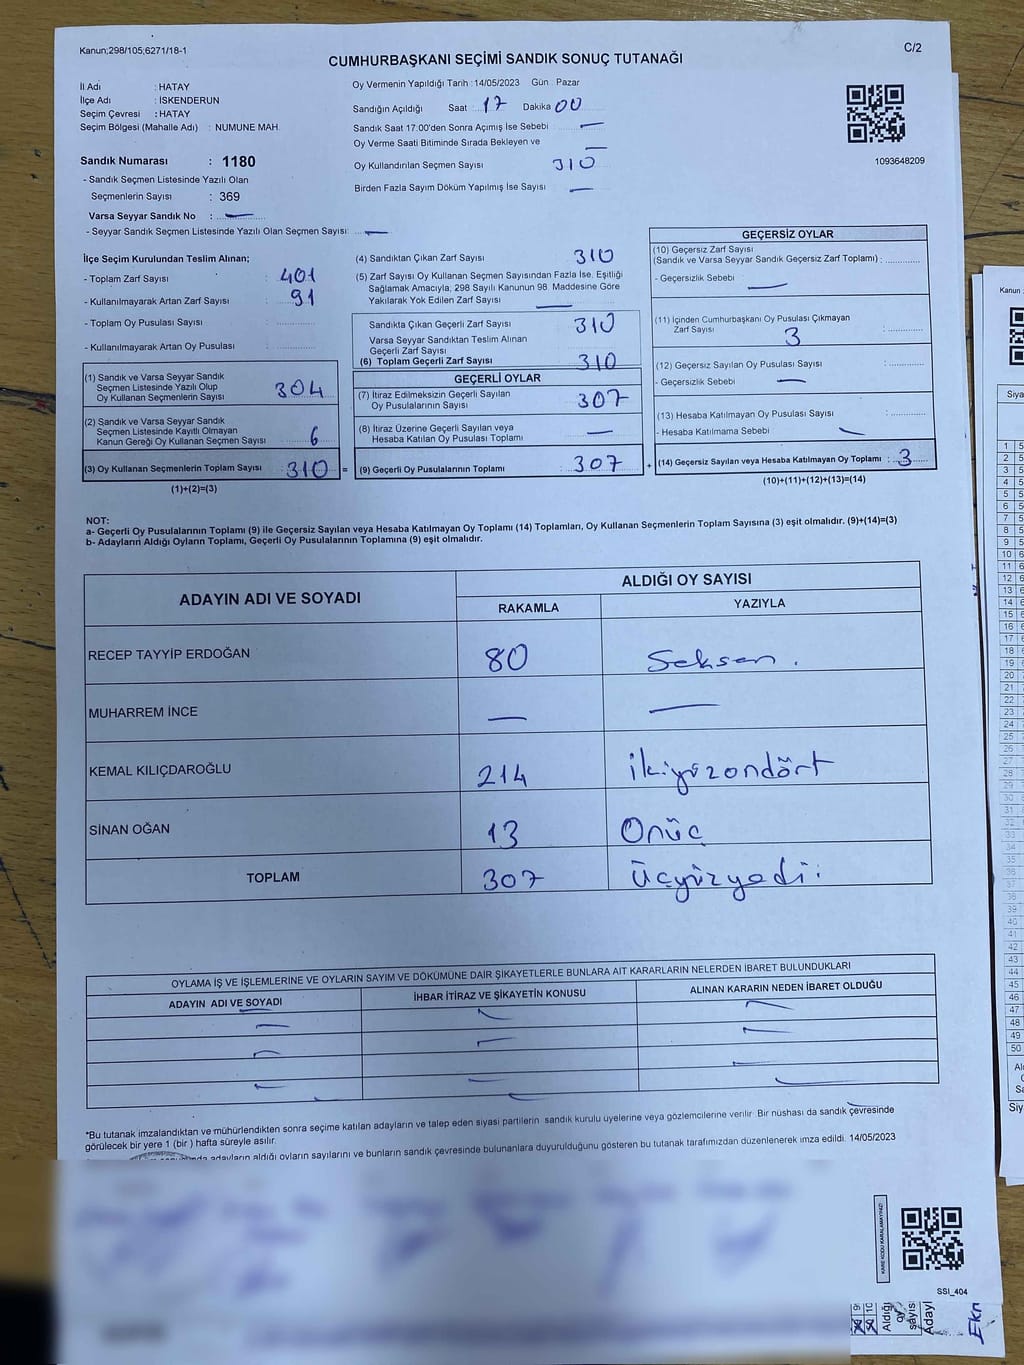 Kanun;298/105;6271/18-1
C/2
CUMHURBAŞKANI SEÇİMİ SANDIK SONUÇ TUTANAĞI
İl Adı : HATAY
İlçe Adı : İSKENDERUN
Seçim Çevresi : HATAY
Seçim Bölgesi (Mahalle Adı) : NUMUNE MAH.
Sandık Numarası : 1180
- Sandık Seçmen Listesinde Yazılı Olan
Seçmenlerin Sayısı : 369
Varsa Seyyar Sandık No : —
- Seyyar Sandık Seçmen Listesinde Yazılı Olan Seçmen Sayısı: —
Oy Vermenin Yapıldığı Tarih :14/05/2023 Gün Pazar
Sandığın Açıldığı Saat 17 Dakika 00
Sandık Saat 17:00'den Sonra Açımış İse Sebebi —
Oy Verme Saati Bitiminde Sırada Bekleyen ve —
Oy Kullandırılan Seçmen Sayısı 310
Birden Fazla Sayım Döküm Yapılmış İse Sayısı —
1093648209
İlçe Seçim Kurulundan Teslim Alınan;
- Toplam Zarf Sayısı : 401
- Kullanılmayarak Artan Zarf Sayısı : 91
- Toplam Oy Pusulası Sayısı :
- Kullanılmayarak Artan Oy Pusulası :
(1) Sandık ve Varsa Seyyar Sandık
Seçmen Listesinde Yazılı Olup
Oy Kullanan Seçmenlerin Sayısı 304
(2) Sandık ve Varsa Seyyar Sandık
Seçmen Listesinde Kayıtlı Olmayan
Kanun Gereği Oy Kullanan Seçmen Sayısı 6
(3) Oy Kullanan Seçmenlerin Toplam Sayısı 310 =
(1)+(2)=(3)
(4) Sandıktan Çıkan Zarf Sayısı 310
(5) Zarf Sayısı Oy Kullanan Seçmen Sayısından Fazla İse, Eşitliği
Sağlamak Amacıyla; 298 Sayılı Kanunun 98. Maddesine Göre
Yakılarak Yok Edilen Zarf Sayısı —
Sandıkta Çıkan Geçerli Zarf Sayısı 310
Varsa Seyyar Sandıktan Teslim Alınan
Geçerli Zarf Sayısı
(6) Toplam Geçerli Zarf Sayısı 310
GEÇERLİ OYLAR
(7) İtiraz Edilmeksizin Geçerli Sayılan
Oy Pusulalarının Sayısı 307
(8) İtiraz Üzerine Geçerli Sayılan veya
Hesaba Katılan Oy Pusulası Toplamı —
(9) Geçerli Oy Pusulalarının Toplamı : 307 +
GEÇERSİZ OYLAR
(10) Geçersiz Zarf Sayısı
(Sandık ve Varsa Seyyar Sandık Geçersiz Zarf Toplamı) :
- Geçersizlik Sebebi —
(11) İçinden Cumhurbaşkanı Oy Pusulası Çıkmayan
Zarf Sayısı : 3
(12) Geçersiz Sayılan Oy Pusulası Sayısı :
- Geçersizlik Sebebi —
(13) Hesaba Katılmayan Oy Pusulası Sayısı :
- Hesaba Katılmama Sebebi —
(14) Geçersiz Sayılan veya Hesaba Katılmayan Oy Toplamı : 3
(10)+(11)+(12)+(13)=(14)
NOT:
a- Geçerli Oy Pusulalarının Toplamı (9) ile Geçersiz Sayılan veya Hesaba Katılmayan Oy Toplamı (14) Toplamları, Oy Kullanan Seçmenlerin Toplam Sayısına (3) eşit olmalıdır. (9)+(14)=(3)
b- Adayların Aldığı Oyların Toplamı, Geçerli Oy Pusulalarının Toplamına (9) eşit olmalıdır.
ADAYIN ADI VE SOYADI
ALDIĞI OY SAYISI
RAKAMLA YAZIYLA
RECEP TAYYİP ERDOĞAN 80 Seksen.
MUHARREM İNCE — —
KEMAL KILIÇDAROĞLU 214 ikiyüzondört
SİNAN OĞAN 13 Onüç
TOPLAM 307 Üçyüzyedi:
OYLAMA İŞ VE İŞLEMLERİNE VE OYLARIN SAYIM VE DÖKÜMÜNE DAİR ŞİKAYETLERLE BUNLARA AİT KARARLARIN NELERDEN İBARET BULUNDUKLARI
ADAYIN ADI VE SOYADI İHBAR İTİRAZ VE ŞİKAYETİN KONUSU ALINAN KARARIN NEDEN İBARET OLDUĞU
*Bu tutanak imzalandıktan ve mühürlendikten sonra seçime katılan adayların ve talep eden siyasi partilerin sandık kurulu üyelerine veya gözlemcilerine verilir. Bir nüshası da sandık çevresinde
görülecek bir yere 1 (bir ) hafta süreyle asılır.
adayların aldığı oyların sayılarını ve bunların sandık çevresinde bulunanlara duyurulduğunu gösteren bu tutanak tarafımızdan düzenlenerek imza edildi. 14/05/2023
KARE KODU KARALAMAYINIZ!
SSI_404
Aldığı
oy
sayısı
Adayl
Ekn
Kanun
Siya
1 5
2 5
3 5
4 5
5 5
6 5
7 5
8 5
9 5
10 6
11 6
12 6
13 6
14 6
15 6
16 6
17 6
18 6
19 6
20 7
21 7
22 7
23 7
24 7
25 7
26 7
27 7
28 7
29 7
30
31
32
33
34
35
36
37
38
39
40
41
42
43
44
45
46
47
48
49
50
Siy